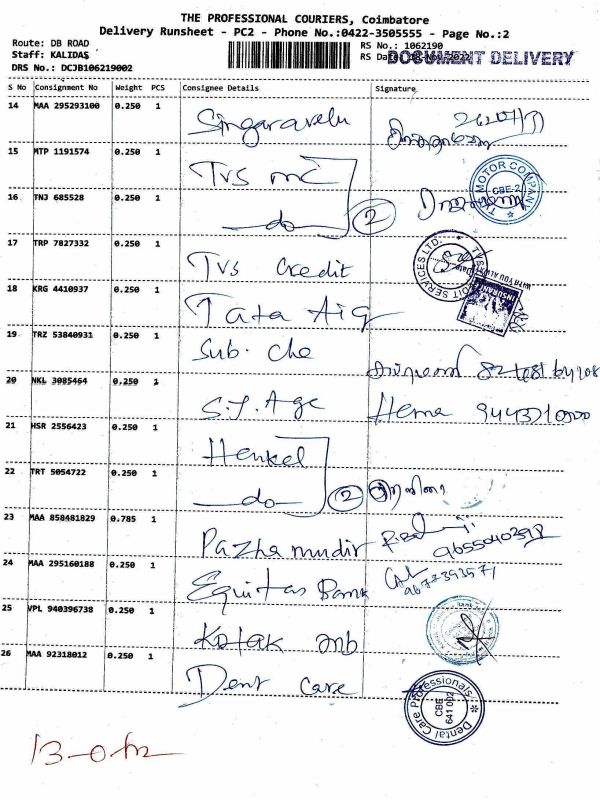 THE PROFESSIONAL COURIERS, Coimbatore
Delivery Runsheet - PC2 - Phone No.:0422-3505555 - Page No.:2
Route: DB ROAD
Staff: KALIDAS
DRS No.: DCJB106219002
RS No.: 1062190
RS Da
DOCUMENT DELIVERY
S No Consignment No Weight PCS Consignee Details Signature
14 MAA 295293100 0.250 1 Singaravelu
15 MTP 1191574 0.250 1 TVS mc
16 TNJ 685528 0.250 1 do 2
MOTOR COMPANY
CBE-2
17 TRP 7827332 0.250 1 TVS Credit
18 KRG 4410937 0.250 1 Tata Aig
19 TRZ 53840931 0.250 1 Sub. Che
20 NKL 3085464 0.250 1 S.J. Age Hema
21 HSR 2556423 0.250 1 Henkel
22 TRT 5054722 0.250 1 do 2
23 MAA 858481829 0.785 1 Pazhamudir 9655040398
24 MAA 295160188 0.250 1 Equitas Bank
25 VPL 940396738 0.250 1 Kotak mb
26 MAA 92318012 0.250 1 Dent Care
Dental Care Professionals
CBE
641 002